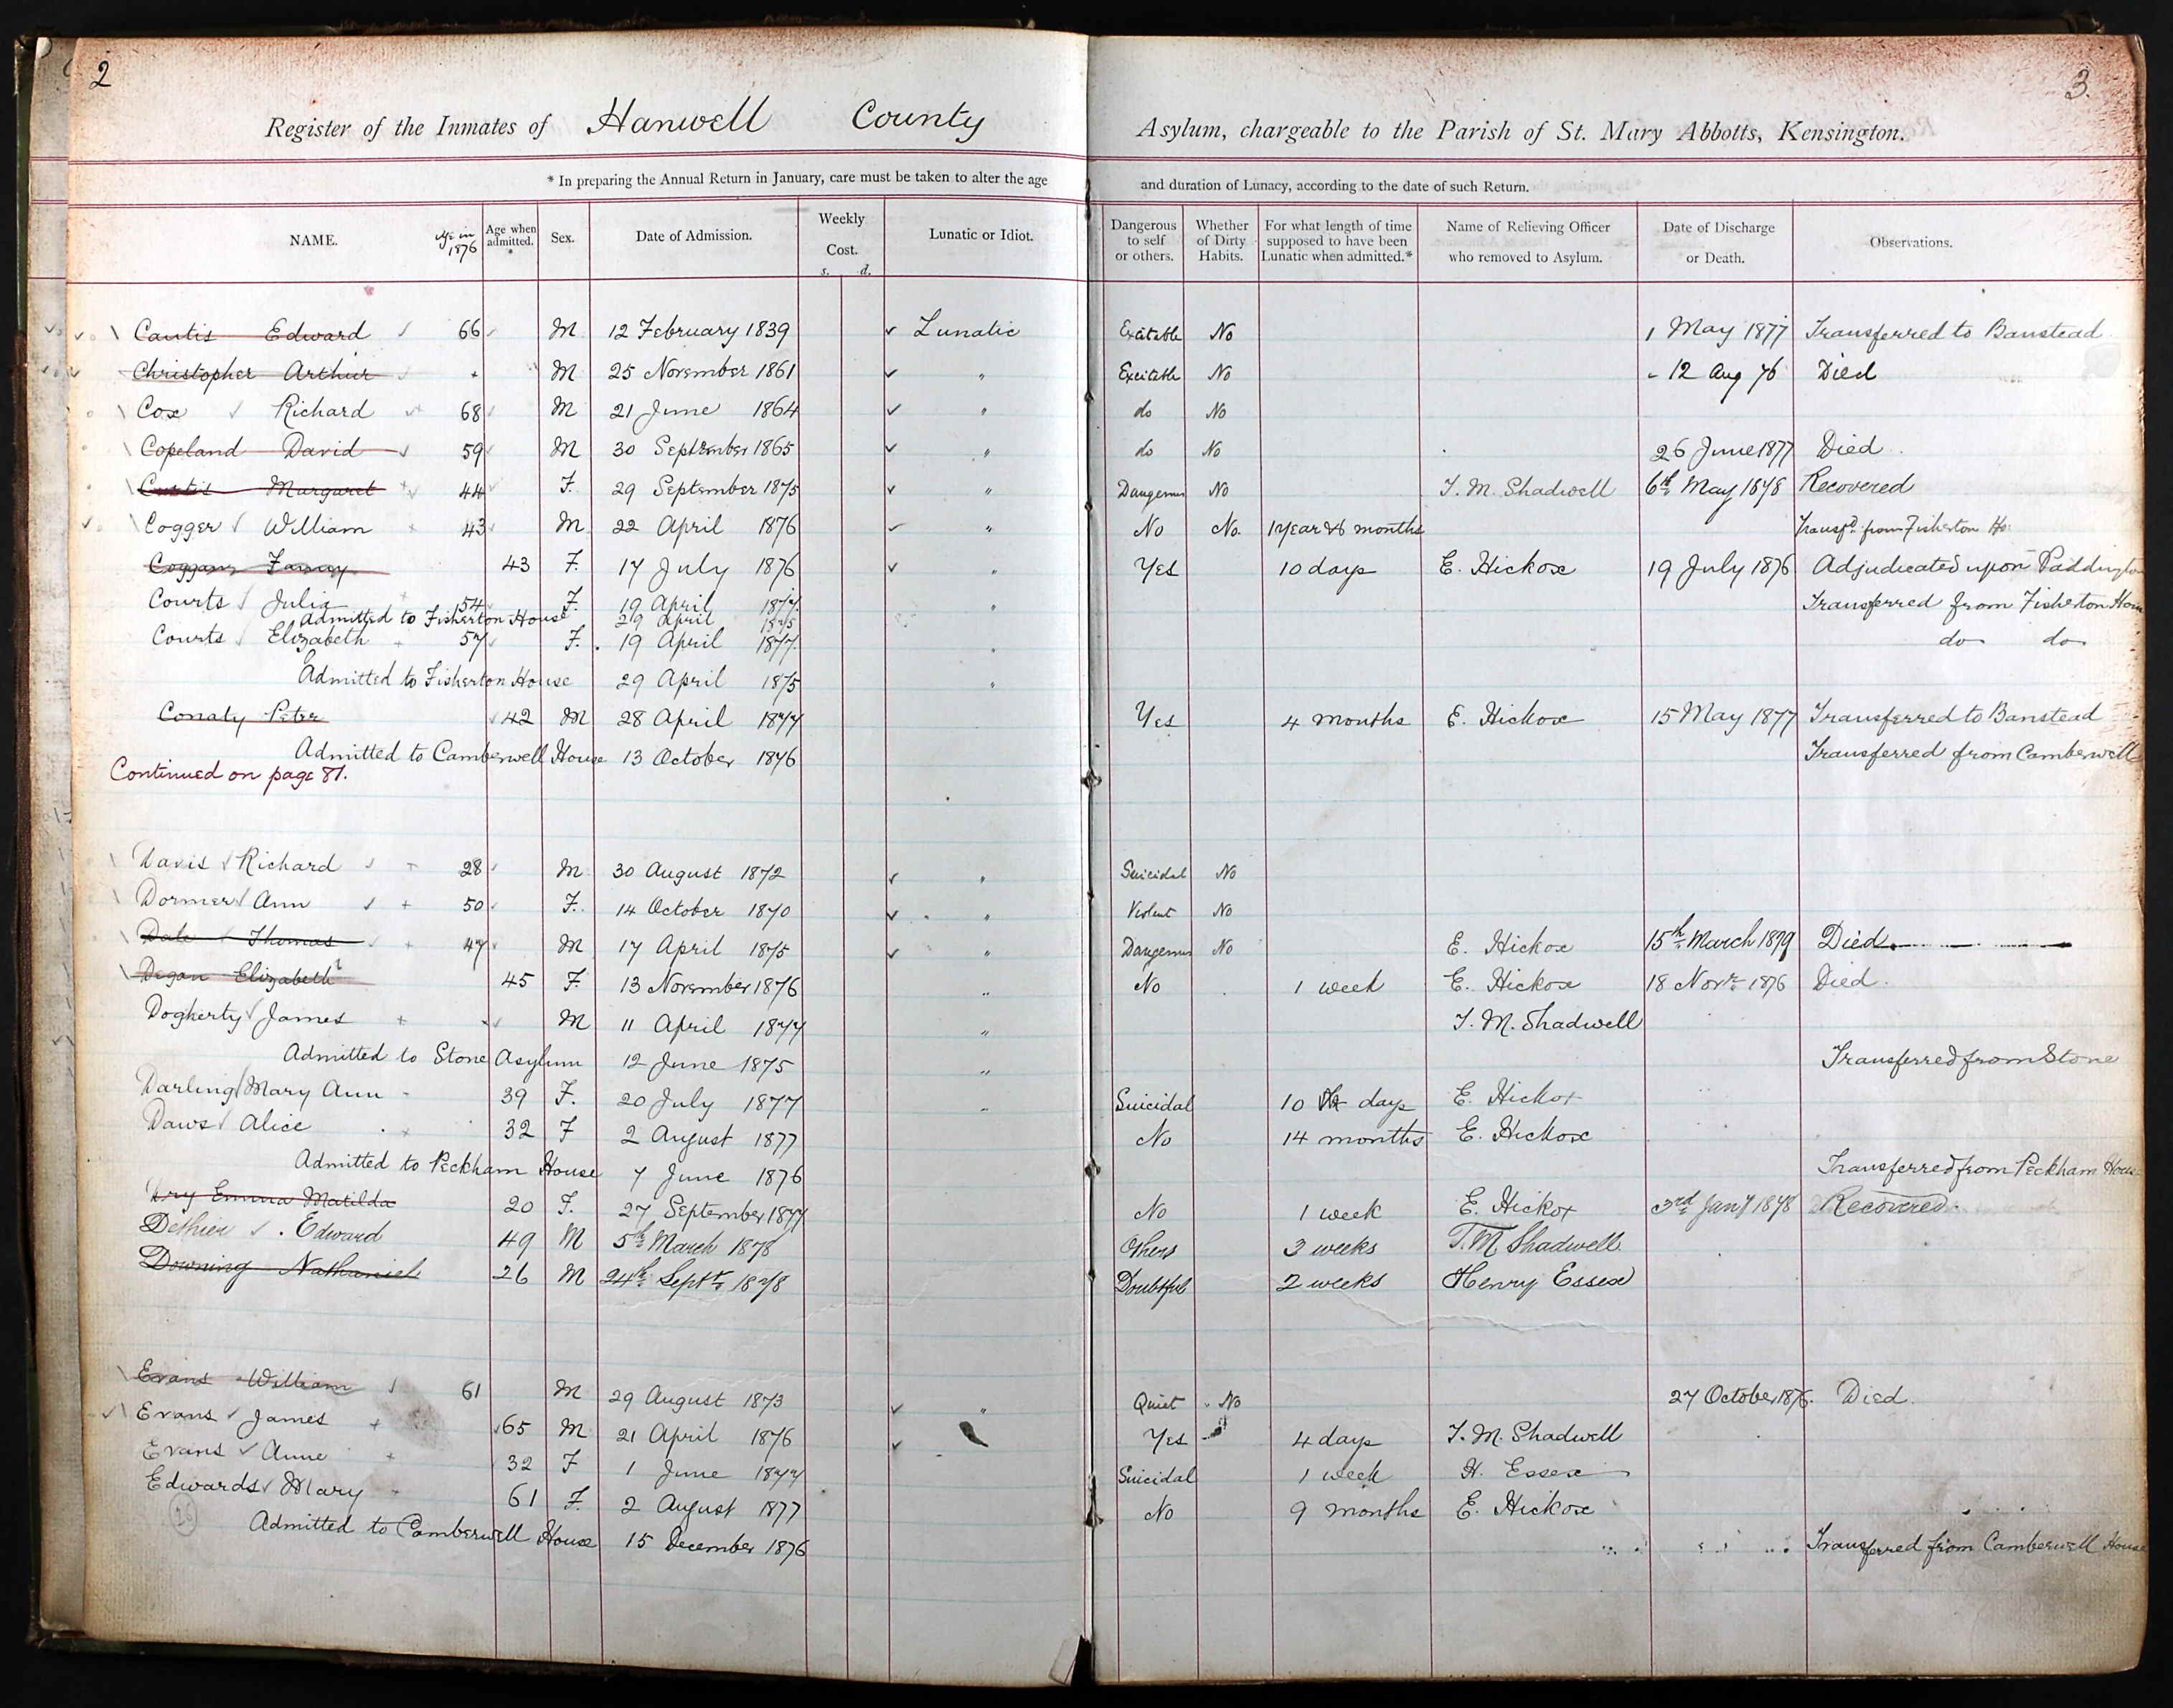 2
3.
Register of the Inmates of Hanwell County Asylum, chargeable to the Parish of St. Mary Abbotts, Kensington.
* In preparing the Annual Return in January, care must be taken to alter the age and duration of Lunacy, according to the date of such Return.
NAME. Age in 1876 Age when admitted.* Sex. Date of Admission. Weekly Cost. s. d. Lunatic or Idiot. Dangerous to self or others. Whether of Dirty Habits. For what length of time supposed to have been Lunatic when admitted.* Name of Relieving Officer who removed to Asylum. Date of Discharge or Death. Observations.
Cautis Edward 66 M 12 February 1839 Lunatic Excitable No 1 May 1877 Transferred to Banstead
Christopher Arthur M 25 November 1861 " Excitable No 12 Aug 76 Died
Cox Richard 68 M 21 June 1864 " do No
Copeland David 59 M 30 September 1865 " do No 26 June 1877 Died
Curtis Margaret 44 F. 29 September 1875 " Dangerous No T. M. Shadwell 6th May 1878 Recovered
Cogger William 43 M 22 April 1876 " No No. 1 year & 6 months Transfd from Fisherton Ho.
Coggans Fanny 43 F. 17 July 1876 " Yes 10 days E. Hickox 19 July 1876 Adjudicated upon Paddington
Courts Julia 54 F. 19 April 1877. " Transferred from Fisherton House
Admitted to Fisherton House 29 April 1875
Courts Elizabeth 57 F. 19 April 1877. " do do
Admitted to Fisherton House 29 April 1875 "
Conaty Peter 42 M 28 April 1877 Yes 4 months E. Hickox 15 May 1877 Transferred to Banstead
Admitted to Camberwell House 13 October 1876 Transferred from Camberwell
Continued on page 81.
Davis Richard 28 M 30 August 1872 " Suicidal No
Dormer Ann 50 F. 14 October 1870 " Violent No
Dale Thomas 47 M 17 April 1875 " Dangerous No E. Hickox 15th March 1879 Died
Degan Elizabeth 45 F. 13 November 1876 " No 1 week E. Hickox 18 Novr 1876 Died.
Dogherty James M 11 April 1877 " T. M. Shadwell
Admitted to Stone Asylum 12 June 1875 " Transferred from Stone
Darling Mary Ann 39 F. 20 July 1877 " Suicidal 10 days E. Hickox
Daws Alice 32 F 2 August 1877 No 14 months E. Hickox
Admitted to Peckham House 7 June 1876 Transferred from Peckham House
Dry Emma Matilda 20 F. 27 September 1877 No 1 week E. Hickox 3rd Jany 1878 Recovered.
Dethier Edward 49 M 5th March 1878 Others 3 weeks T. M. Shadwell
Downing Nathaniel 26 M 24th Septr 1878 Doubtful 2 weeks Henry Essex
Evans William 61 M 29 August 1873 " Quiet No 27 October 1876. Died.
Evans James 65 M 21 April 1876 Yes 4 days T. M. Shadwell
Evans Anne 32 F 1 June 1877 Suicidal 1 week H. Essex
Edwards Mary 61 F. 2 August 1877 No 9 months E. Hickox
26
Admitted to Camberwell House 15 December 1876 Transferred from Camberwell House